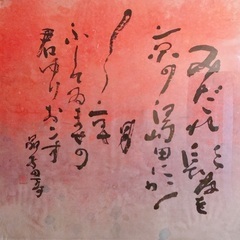 みだれ髪を
京の島田にか
へし朝
ふしてゐませの
君ゆりおこす